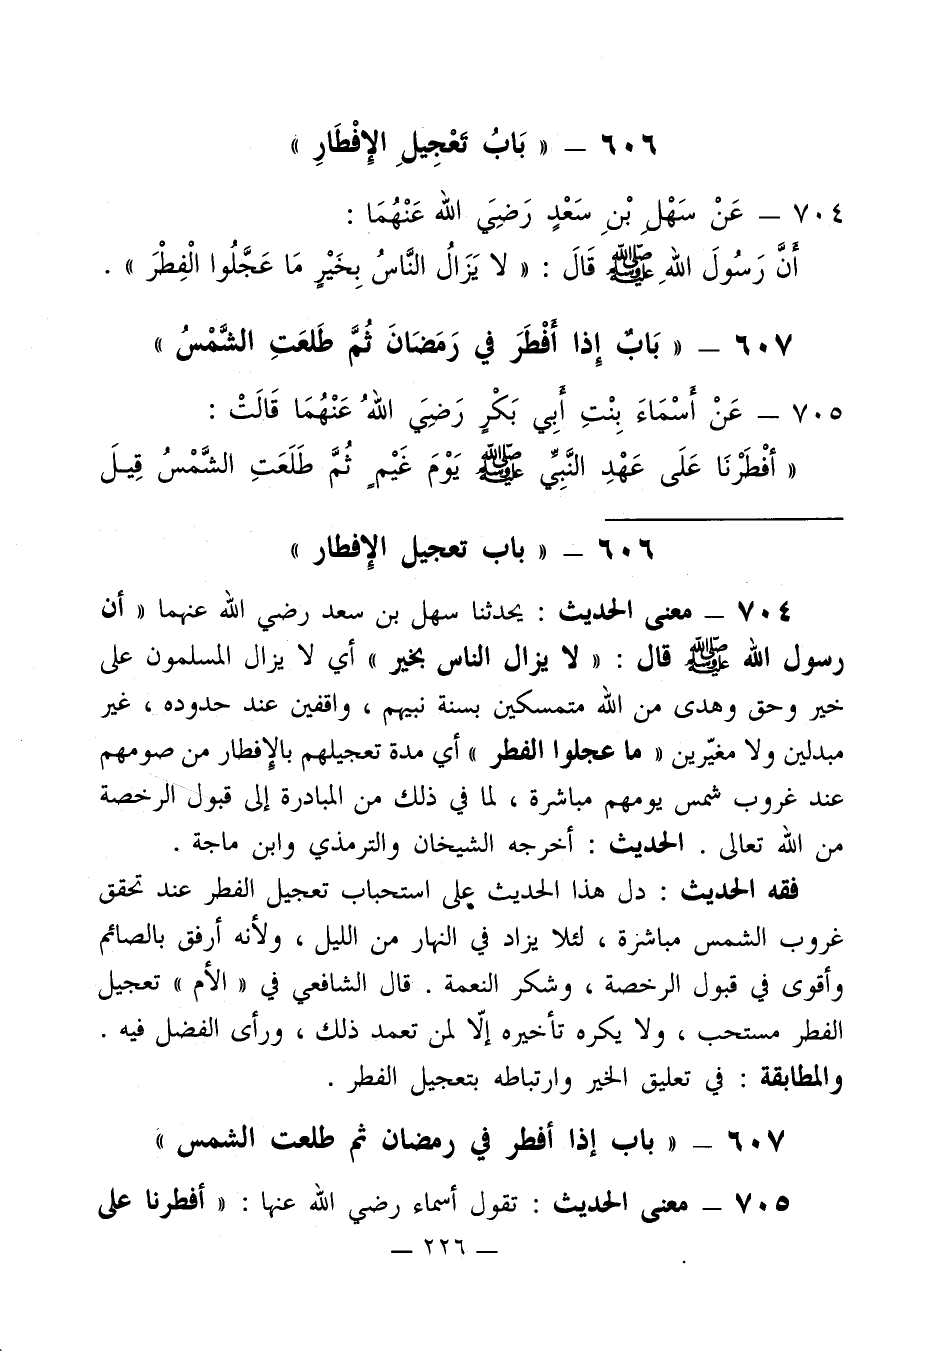 ٦٠٦ – « بَابُ تَعْجِيلِ الإِفْطَارِ »
٧٠٤ – عَنْ سَهْلِ بْنِ سَعْدٍ رَضِيَ اللهُ عَنْهُمَا :
أَنَّ رَسُولَ اللهِ ﷺ قَالَ : « لا يَزَالُ النَّاسُ بِخَيْرٍ مَا عَجَّلُوا الْفِطْرَ » .
٦٠٧ – « بَابٌ إِذا أَفْطَرَ في رَمَضَانَ ثُمَّ طَلَعَتِ الشَّمْسُ »
٧٠٥ – عَنْ أَسْمَاءَ بِنْتِ أَبِي بَكْرٍ رَضِيَ اللهُ عَنْهُمَا قَالَتْ :
« أَفْطَرْنَا عَلَى عَهْدِ النَّبِيِّ ﷺ يَوْمَ غَيْمٍ ثُمَّ طَلَعَتِ الشَّمْسُ قِيلَ
٦٠٦ – « باب تعجيل الإفطار »
٧٠٤ – معنى الحديث : يحدثنا سهل بن سعد رضي الله عنهما « أن
رسول الله ﷺ قال : « لا يزال الناس بخير » أي لا يزال المسلمون على
خير وحق وهدى من الله متمسكين بسنة نبيهم ، واقفين عند حدوده ، غير
مبدلين ولا مغيّرين « ما عجلوا الفطر » أي مدة تعجيلهم بالإفطار من صومهم
عند غروب شمس يومهم مباشرة ، لما في ذلك من المبادرة إلى قبول الرخصة
من الله تعالى . الحديث : أخرجه الشيخان والترمذي وابن ماجة .
فقه الحديث : دل هذا الحديث على استحباب تعجيل الفطر عند تحقق
غروب الشمس مباشرة ، لئلا يزاد في النهار من الليل ، ولأنه أرفق بالصائم
وأقوى في قبول الرخصة ، وشكر النعمة . قال الشافعي في « الأم » تعجيل
الفطر مستحب ، ولا يكره تأخيره إلّا لمن تعمد ذلك ، ورأى الفضل فيه .
والمطابقة : في تعليق الخير وارتباطه بتعجيل الفطر .
٦٠٧ – « باب إذا أفطر في رمضان ثم طلعت الشمس »
٧٠٥ – معنى الحديث : تقول أسماء رضي الله عنها : « أفطرنا على
– ٢٢٦ –